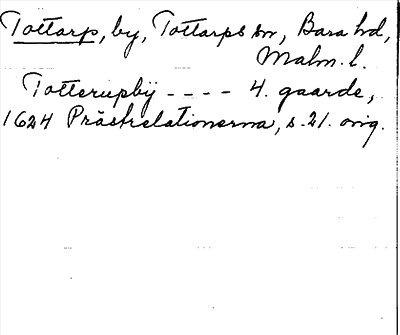 Tottarp, by, Tottarps sn, Bara hd,
Malm. l.
Totterupbÿ - - - - 4. gaarde,
1624 Prästrelationerna, s. 21. orig.